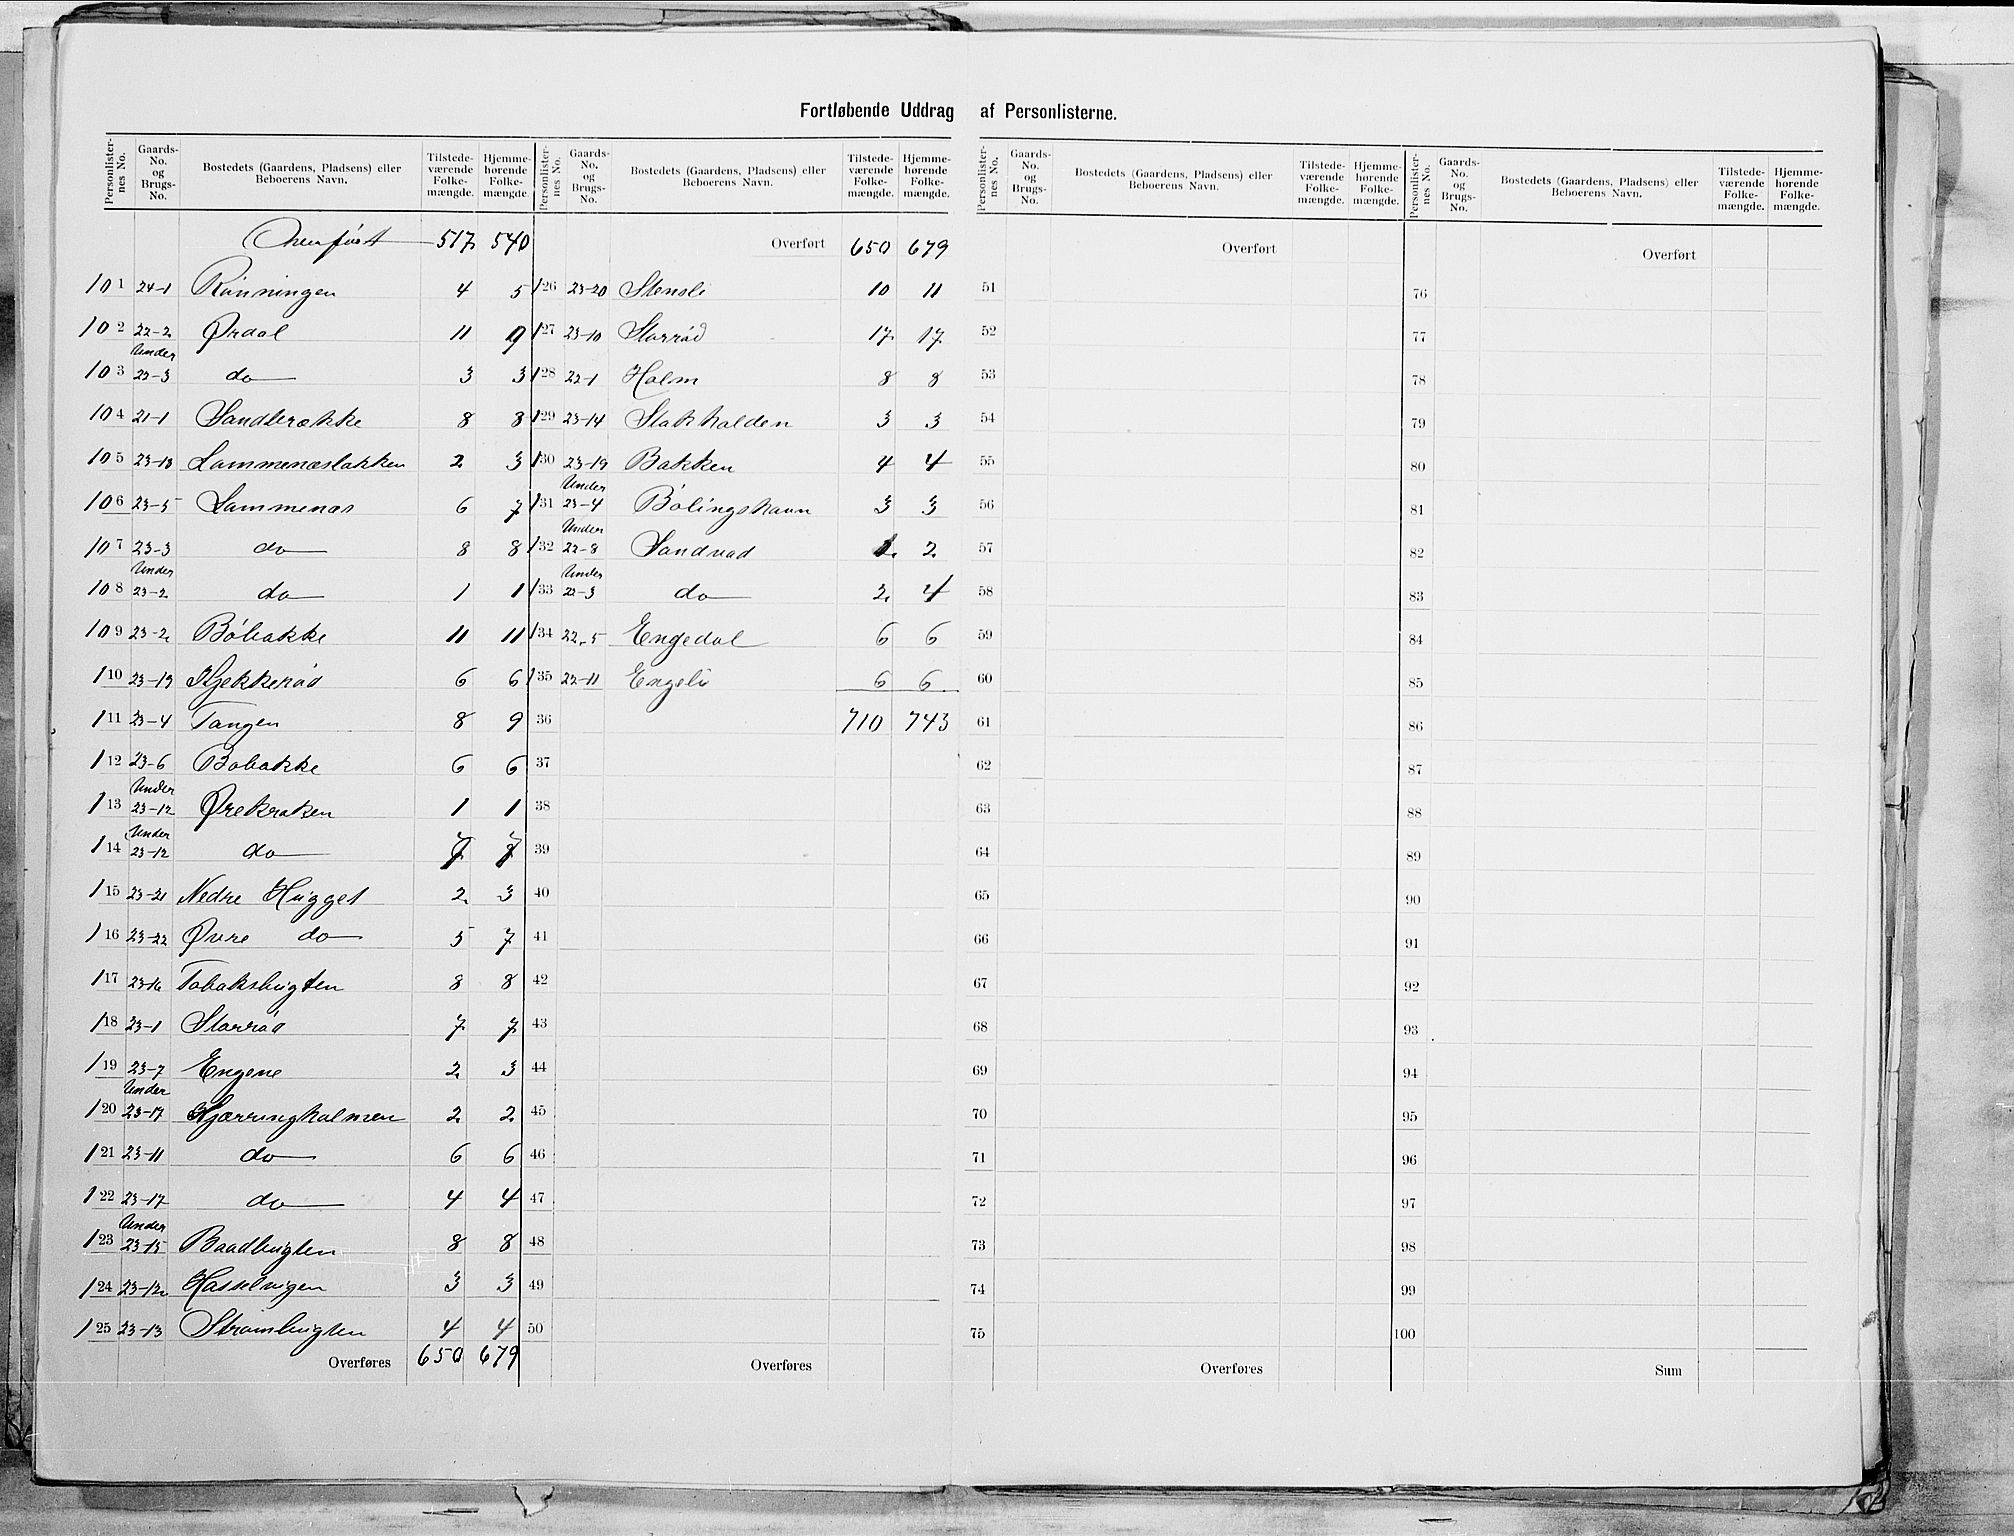 Fortløbende Uddrag af Personlisterne.
Personlister-nes No. Gaards-No. og Brugs-No. Bostedets (Gaardens, Pladsens) eller Beboerens Navn. Tilstede-værende Folke-mængde. Hjemme-hørende Folke-mængde.
Overført 517 540
101 24-1 Rönningen 4 5
102 22-2 Ørdal 11 9
103 Under 22-3 do 3 3
104 21-1 Sandbrække 8 8
105 23-18 Lammenæsbakken 2 3
106 23-5 Lammenæs 6 7
107 23-3 do 8 8
108 Under 23-2 do 1 1
109 23-2 Böbakke 11 11
110 23-19 Kjekkeröd 6 6
111 23-4 Tangen 8 9
112 23-6 Bobakke 6 6
113 Under 23-12 Ørekroken 1 1
114 Under 23-12 do 7 7
115 23-21 Nedre Hugget 2 3
116 23-22 Øvre do 5 7
117 23-16 Tobaksbugten 8 8
118 23-1 Starröd 7 7
119 23-7 Engene 2 3
120 Under 23-17 Kjærringholmen 2 2
121 23-11 do 6 6
122 23-17 do 4 4
123 Under 23-15 Baadbugten 8 8
124 23-12 Hasselvigen 3 3
125 23-13 Strömbugten 4 4
Overføres 650 679
Personlister-nes No. Gaards-No. og Brugs-No. Bostedets (Gaardens, Pladsens) eller Beboerens Navn. Tilstede-værende Folke-mængde. Hjemme-hørende Folke-mængde.
Overført 650 679
126 23-20 Stensli 10 11
127 23-10 Starröd 17 17
128 22-1 Holm 8 8
129 23-14 Stakholden 3 3
130 23-19 Bakken 4 4
131 Under 23-4 Bölingshavn 3 3
132 Under 22-8 Sandvad 1 2
133 Under 22-3 do 2 4
134 22-5 Engedal 6 6
135 22-11 Engeli 6 6
36 710 743
37
38
39
40
41
42
43
44
45
46
47
48
49
50
Overføres
Personlister-nes No. Gaards-No. og Brugs-No. Bostedets (Gaardens, Pladsens) eller Beboerens Navn. Tilstede-værende Folke-mængde. Hjemme-hørende Folke-mængde.
Overført
51
52
53
54
55
56
57
58
59
60
61
62
63
64
65
66
67
68
69
70
71
72
73
74
75
Overføres
Personlister-nes No. Gaards-No. og Brugs-No. Bostedets (Gaardens, Pladsens) eller Beboerens Navn. Tilstede-værende Folke-mængde. Hjemme-hørende Folke-mængde.
Overført
76
77
78
79
80
81
82
83
84
85
86
87
88
89
90
91
92
93
94
95
96
97
98
99
100
Sum